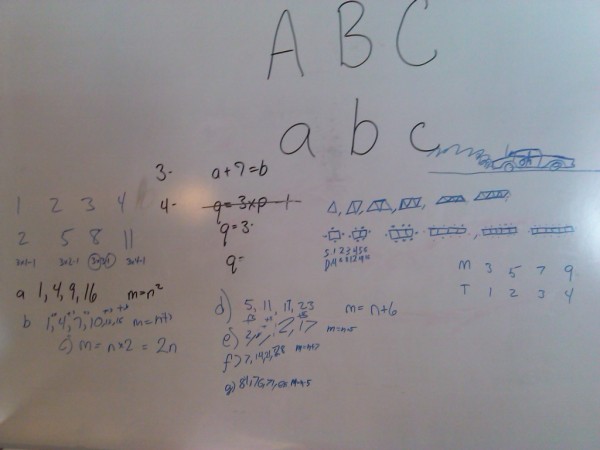 A B C
a b c
3- a+7=b
4- q=3×p-1
q=3·
q-
1 2 3 4
2 5 8 11
3×1-1 3×2-1 3×3-1 3×4-1
a 1, 4, 9, 16 m=n²
b 1, 4, 7, 10, m=n+3
c) m=n×2=2n
d) 5, 11, 17, 23 m=n+6
e) 12, 17 m=n+5
f) 7, 14, 21, 28 m=n+7
g) 81, 76, 71,
M 3 5 7 9
T 1 2 3 4